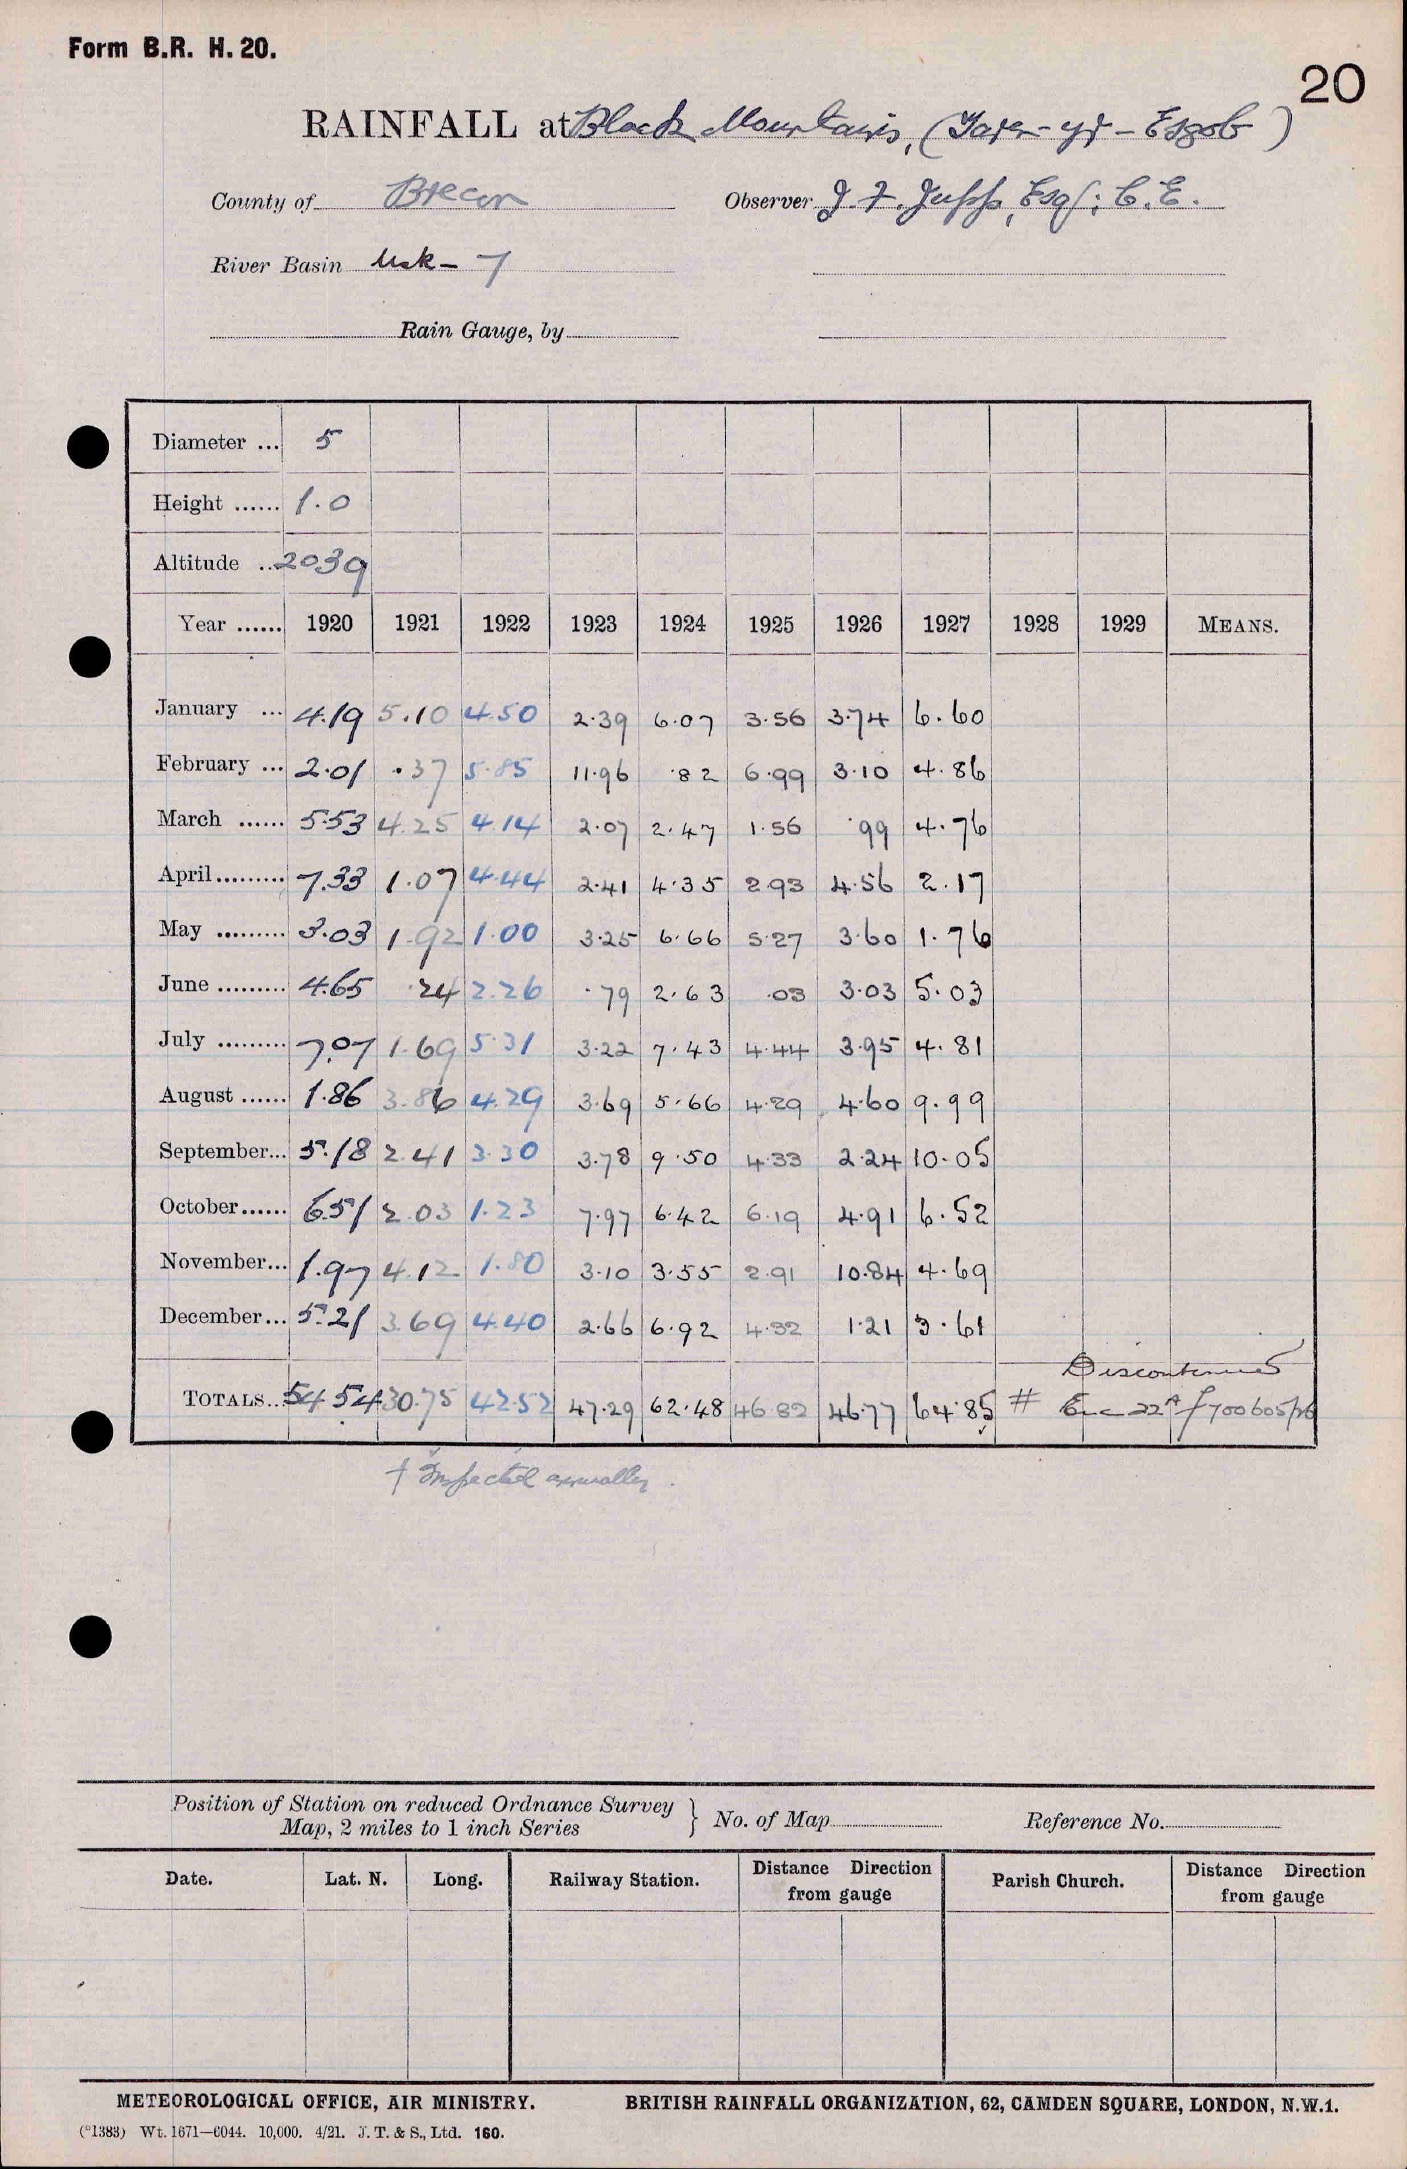 Form B.R. H. 20.
20
RAINFALL at Black Mountains, (Taren-yr-Esgob)
County of Brecon Observer J. F. Jupp, Esq; C.E.
River Basin Usk - 7
Rain Gauge, by
Diameter ... 5
Height ...... 1.0
Altitude .. 2039
Year ...... 1920 1921 1922 1923 1924 1925 1926 1927 1928 1929 MEANS.
January ... 4.19 5.10 4.50 2.39 6.07 3.56 3.74 6.60
February ... 2.01 .37 5.85 11.96 .82 6.99 3.10 4.86
March ...... 5.53 4.25 4.14 2.07 2.47 1.56 .99 4.76
April ......... 7.33 1.07 4.44 2.41 4.35 2.93 4.56 2.17
May ......... 3.03 1.92 1.00 3.25 6.66 5.27 3.60 1.76
June ......... 4.65 .24 2.26 .79 2.63 .03 3.03 5.03
July ......... 7.07 1.69 5.31 3.22 7.43 4.44 3.95 4.81
August ...... 1.86 3.86 4.29 3.69 5.66 4.29 4.60 9.99
September... 5.18 2.41 3.30 3.78 9.50 4.33 2.24 10.05
October...... 6.51 2.03 1.23 7.97 6.42 6.19 4.91 6.52
November... 1.97 4.12 1.80 3.10 3.55 2.91 10.84 4.69
December... 5.21 3.69 4.40 2.66 6.92 4.32 1.21 3.61
Discontinued
TOTALS.. 54.54 30.75 42.52 47.29 62.48 46.82 46.77 64.85 # Enc 22A f 700605/26
† Inspected annually.
Position of Station on reduced Ordnance Survey
Map, 2 miles to 1 inch Series } No. of Map Reference No.
Date. Lat. N. Long. Railway Station. Distance Direction from gauge Parish Church. Distance Direction from gauge
METEOROLOGICAL OFFICE, AIR MINISTRY. BRITISH RAINFALL ORGANIZATION, 62, CAMDEN SQUARE, LONDON, N.W.1.
(*1383) Wt. 1671—6044. 10,000. 4/21. J. T. & S., Ltd. 160.